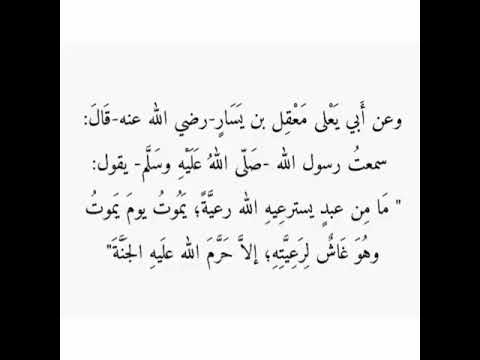 وعن أَبي يَعْلى مَعْقِل بن يَسَارٍ-رضي الله عنه-قَالَ:
سمعتُ رسول الله -صَلّى اللهُ عَلَيْهِ وسَلَّم- يقول:
" مَا مِن عبدٍ يسترعِيهِ الله رعيَّةً؛ يَمُوتُ يومَ يَموتُ
وهُوَ غَاشٌ لِرَعِيَّتِهِ؛ إلاَّ حَرَّمَ الله علَيهِ الجَنَّةَ"